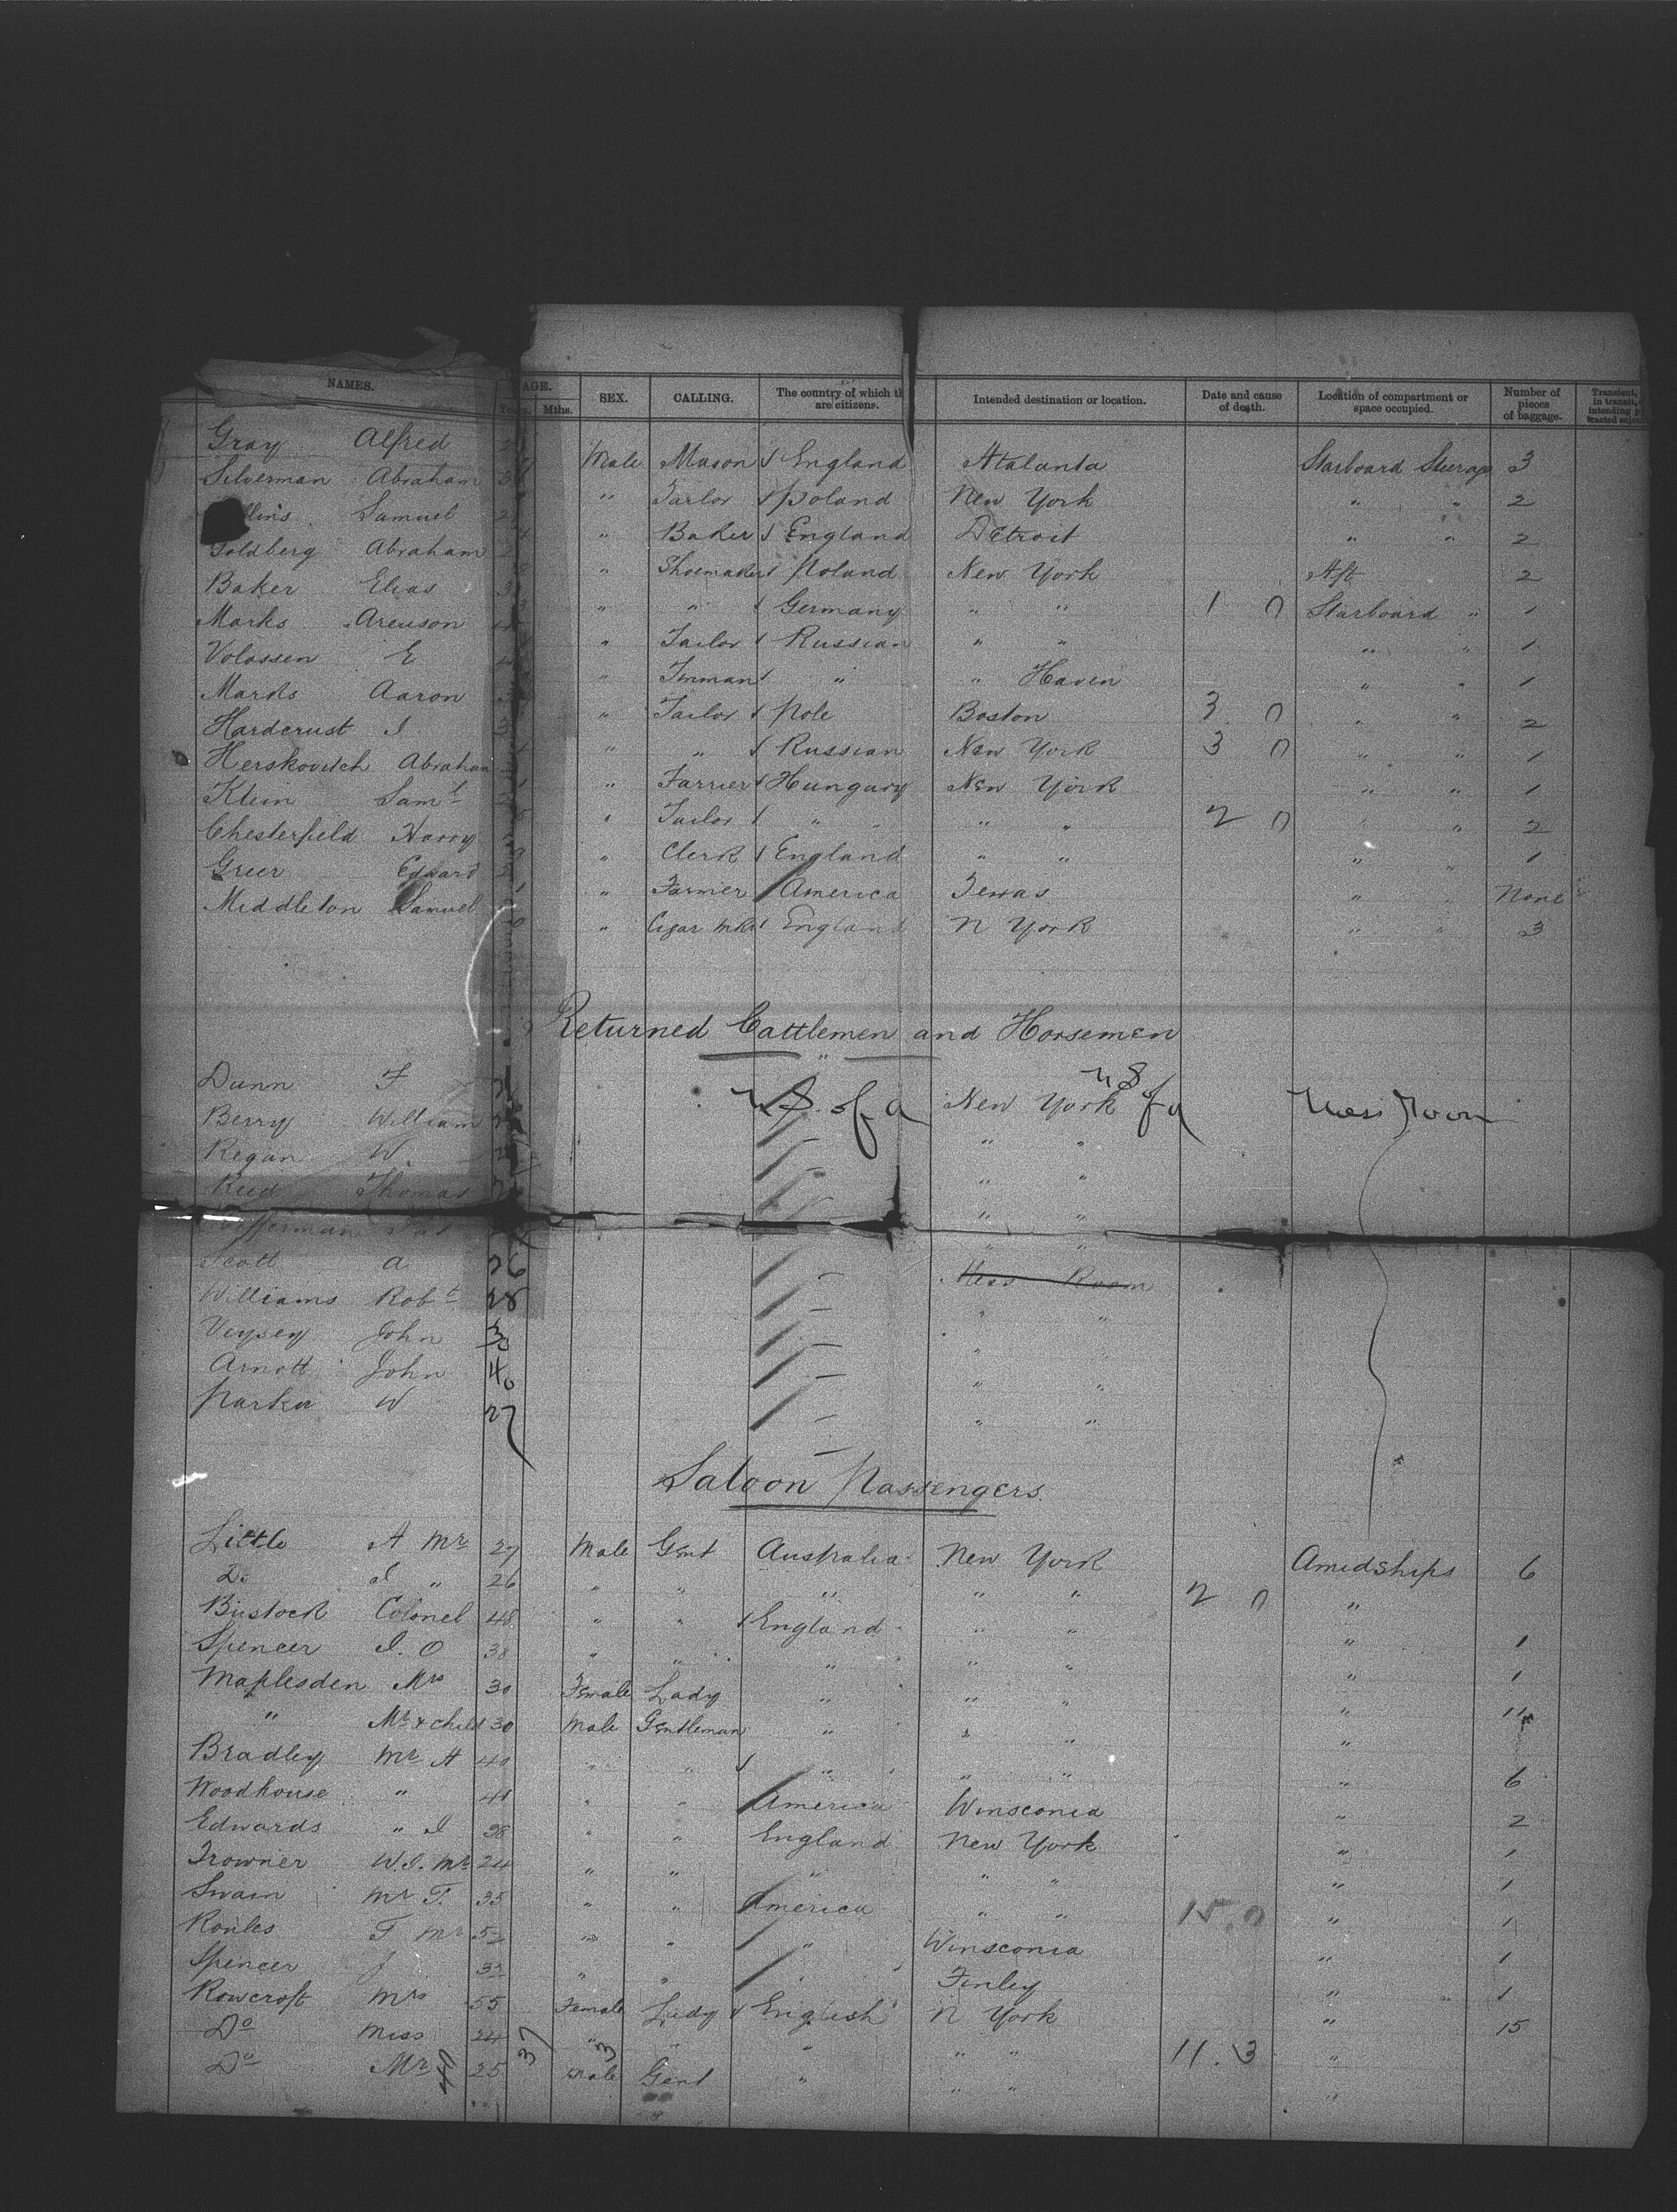 NAMES. AGE. SEX. CALLING. The country of which th are citizens. Intended destination or location. Date and cause of death. Location of compartment or space occupied. Number of pieces of baggage. Transient, in transit, intending
Mths.
Gray Alfred Male Mason England Atalanta Starboard Steerage 3
Silverman Abraham 3 " Tailor Poland New York " " 2
llins Samuel 2 " Baker England Detroit " " 2
Goldberg Abraham 2 " Shoemaker Poland New York Aft 2
Baker Elias 3 " " Germany " " 1 0 Starboard " 1
Marks Areuson " Tailor Russian " " " " 1
Volassen E " Tinman " " Haven " " 1
Marks Aaron 3 " Tailor Pole Boston 3 0 " " 2
Hardcrust I 3 " " Russian New York 3 0 " " 1
Herskovitch Abraham " Farrier Hungary New York " " 1
Klein Saml 2 " Tailor " " " 2 0 " " 2
Chesterfield Harry " Clerk England " " " " 1
Greer Edward 3 " Farmer America Texas " " None
Middleton Samuel " Cigar mkr England N York " " 3
Returned Cattlemen and Horsemen
Dunn F U S of a New York U S of a Mess Room
Berry William 2 " "
Regan W. 2 " "
Reed Thomas " "
fferman Pat " "
Scott A 26 Mess Room
Williams Robt 28 " "
Veysey John 30 " "
Arnott John 40 " "
Parker W 27 " "
Saloon Passengers
Little A Mr 27 Male Gent Australia New York Amidships 6
Do I " 26 " " " " " 2 0 "
Bustock Colonel 48 " " England " " " 1
Spencer I. O 38 " " " " " " 1
Maplesden Mrs 30 Female Lady " " " " 11
" Mr & child 30 Male Gentleman " " " "
Bradley Mr H 40 " " " " " " 6
Woodhouse " 48 " " America Winsconia " 2
Edwards " I 38 " " England New York " 1
Trowner W.I. Mr 24 " " " " " " 1
Swain Mr T. 35 " " America " " 15.0 " 1
Roules F Mr 52 " " " Winsconia " 1
Spencer J 32 " " " Finley " 1
Rowcroft Mrs 55 Female Lady English N York " 15
Do Miss 24 37 " 3 " " " " 11.3 "
Do Mr 40 25 Male Gent " " " "